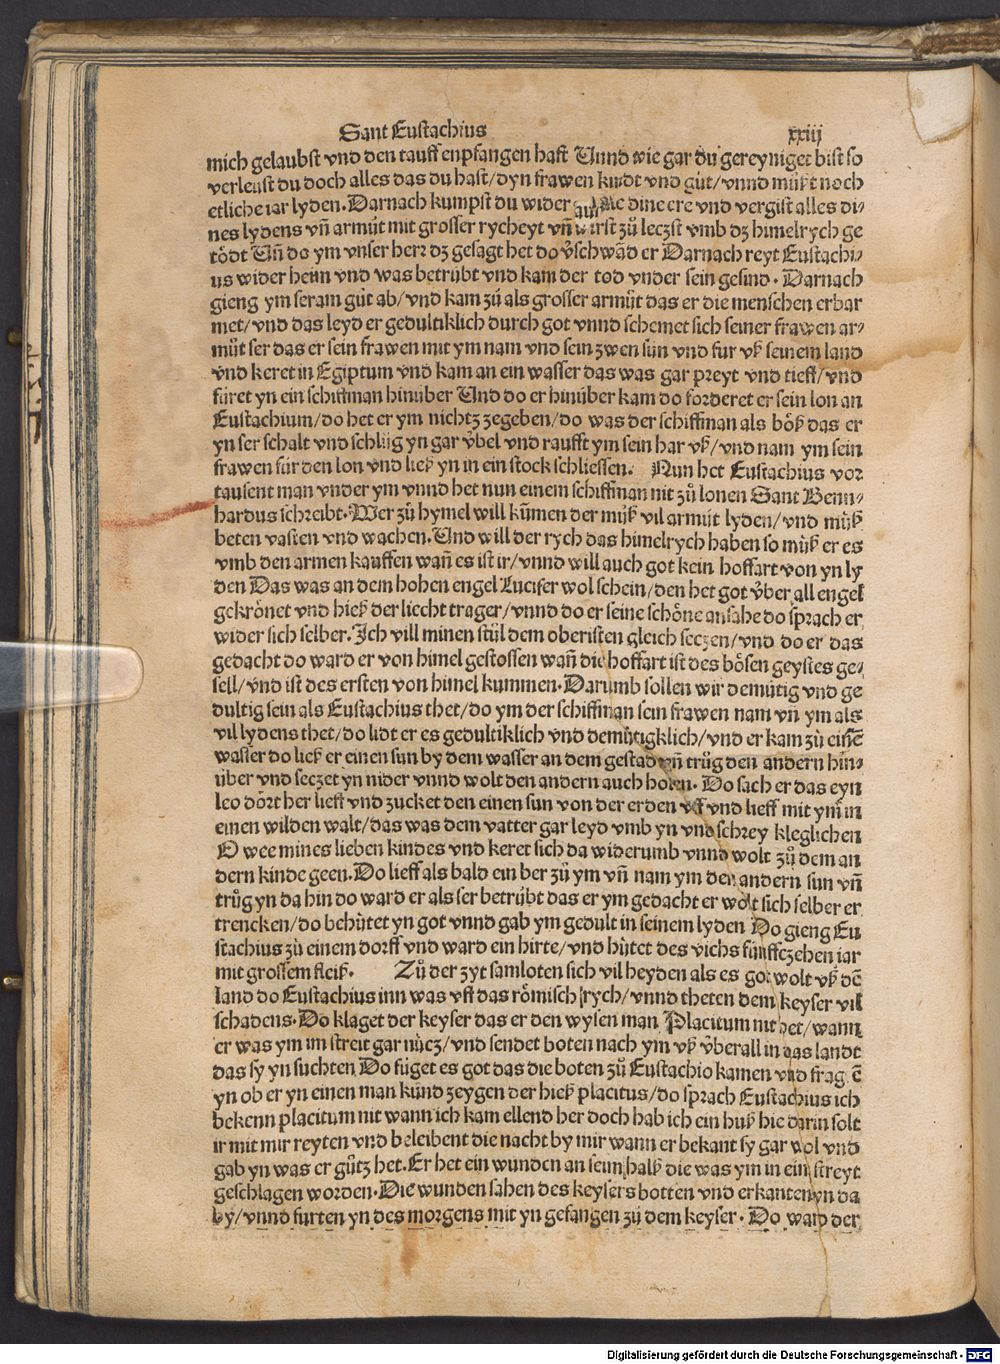 Sant Eustachius xxiij
mich gelaubst vnd den tauff enpfangen hast Vnnd wie gar du gereyniget bist so
verleust du doch alles das du hast/dyn frawen kindt vnd gůt/vnnd můst noch
etliche iar lyden. Darnach kumpst du wider dine ere vnd vergist alles di⸗
nes lydens vñ armůt mit grosser rycheyt vñ wirst zů leczst vmb dz himelrych ge
tödt Vñ do ym vnser herr dz gesagt het do v̓schwãd er Darnach reyt Eustachi⸗
us wider heim vnd was betrůbt vnd kam der tod vnder sein gesind. Darnach
gieng ym seram gůt ab/vnd kam zů als grosser armůt das er die menschen erbar
met/vnd das leyd er gedultiklich durch got vnnd schemet sich seiner frawen ar⸗
můt ser das er sein frawen mit ym nam vnd sein zwen sün vnd fur vß seinem land
vnd keret in Egiptum vnd kam an ein wasser das was gar preyt vnd tieff/vnd
füret yn ein schiffman hinüber Vnd do er hinüber kam do forderet er sein lon an
Eustachium/do het er ym nichtz zegeben/do was der schiffman als böß das er
yn ser schalt vnd schlůg yn gar v̈bel vnd raufft ym sein har vß/vnd nam ym sein
frawen für den lon vnd ließ yn in ein stock schliessen. Nun het Eustachius vor
tausent man vnder ym vnnd het nun einem schiffman nit zů lonen Sant Bern⸗
hardus schreibt. Wer zů hymel will kũmen der můß vil armůt lyden/vnd můß
beten vasten vnd wachen. Vnd will der rych das himelrych haben so můß er es
vmb den armen kauffen wañ es ist ir/vnnd will auch got kein hoffart von yn ly
den Das was an dem hohen engel Lucifer wol schein/den het got v̈ber all engel
gekrönet vnd hieß der liecht trager/vnnd do er seine schöne ansahe do sprach er
wider sich selber. Ich vill minen stůl dem oberisten gleich seczen/vnd do er das
gedacht do ward er von himel gestossen wañ die hoffart ist des bösen geystes ge⸗
sell/vnd ist des ersten von himel kummen. Darumb sollen wir demütig vnd ge
dultig sein als Eustachius thet/do ym der schiffman sein frawen nam vñ ym als
vil lydens thet/do lidt er es gedultiklich vnd demütigklich/vnd er kam zů einẽ
wasser do ließ er einen sun by dem wasser an dem gestad vñ trůg den andern hin⸗
über vnd seczet yn nider vnnd wolt den andern auch holen. Do sach er das eyn
leo dört her lieff vnd zucket den einen sun von der erden vff vnd lieff mit ym in
einen wilden walt/das was dem vatter gar leyd vmb yn vnd schrey kleglichen
O wee mines lieben kindes vnd keret sich da widerumb vnnd wolt zů dem an
dern kinde geen. Do lieff als bald ein ber zů ym vñ nam ym den andern sun vñ
trůg yn da hin do ward er als ser betrůbt das er ym gedacht er wolt sich selber er
trencken/do behůtet yn got vnnd gab ym gedult in seinem lyden Do gieng Eu
stachius zů einem dorff vnd ward ein hirte/vnd hůtet des vichs fünffczehen iar
mit grossem fleiß. Zů der zyt samloten sich vil heyden als es got wolt vß dẽ
land do Eustachius inn was vff das römisch rych/vnnd theten dem keyser vil
schadens. Do klaget der keyser das er den wysen man Placitum nit het/wann
er was ym im streit gar nůcz/vnd sendet boten nach ym vß v̈berall in das landt
das sy yn suchten Do füget es got das die boten zů Eustachio kamen vnd fragtẽ
yn ob er yn einen man künd zeygen der hieß placitus/do sprach Eustachius ich
bekenn placitum nit wann ich kam ellend her doch hab ich ein huß hie darin solt
ir mit mir reyten vnd beleibent die nacht by mir wann er bekant sy gar wol vnd
gab yn was er gůtz het. Er het ein wunden an seim halß die was ym in ein streyt
geschlagen worden. Die wunden sahen des keysers botten vnd erkanten yn da
by/vnnd furten yn des morgens mit yn gefangen zů dem keyser. Do ward der
Digitalisierung gefördert durch die Deutsche Forschungsgemeinschaft - DFG